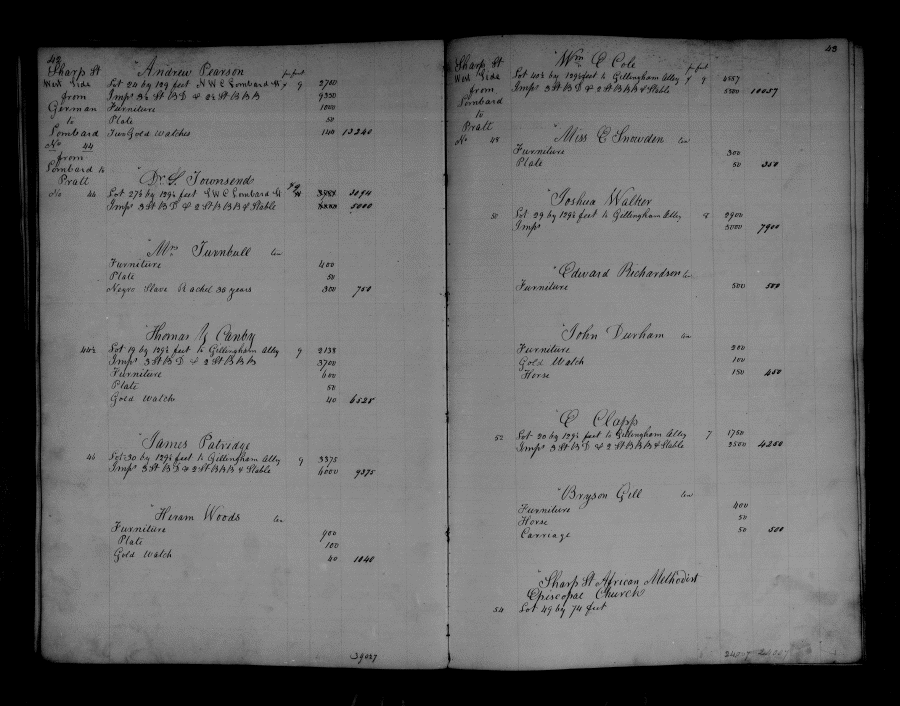 42
Sharp St
West Side
from
German
to
Lombard
No 44
from
Lombard to
Pratt
"Andrew Pearson
per foot
Lot 24 by 129 feet N W C Lombard St 9 2700
Imps 3½ St B D & 2½ St B B B 9350
Furniture 1000
Plate 50
Two Gold Watches 140 13240
"Dr. S. Townsend
No 44 Lot 27½ by 129½ feet S W C Lombard St 3094
Imps 3 St B D & 2 St B B B & Stable 5000
"Mrs. Turnbull ten
Furniture 400
Plate 50
Negro Slave Rachel 38 years 300 750
"Thomas Y Canby
44½ Lot 19 by 129½ feet to Gillingham Alley 9 2138
Imps 3 St B D & 2 St B B B 3700
Furniture 600
Plate 50
Gold Watch 40 6528
"James Patridge
46 Lot 30 by 129½ feet to Gillingham Alley 9 3375
Imps 3 St B D & 2 St B B B & Stable 6000 9375
"Hiram Woods ten
Furniture 900
Plate 100
Gold Watch 40 1040
39027
43
Sharp St
West Side
from
Lombard
to
Pratt
"Wm C Cole
per foot
Lot 40½ by 129½ feet to Gillingham Alley 9 4557
Imps 3 St B D & 2 St B B B & Stable 5500 10057
No 48
"Miss C Snowden ten
Furniture 300
Plate 50 350
"Joshua Walker
50 Lot 29 by 129½ feet to Gillingham Alley 8 2900
Imps 5000 7900
"Edward Richardson ten
Furniture 500 500
"John Durham ten
Furniture 200
Gold Watch 100
Horse 150 450
"E Clapp
52 Lot 20 by 129½ feet to Gillingham Alley 7 1750
Imps 3 St B D & 2 St B B B & Stable 2500 4250
"Bryson Gill ten
Furniture 400
Horse 50
Carriage 50 500
"Sharp St African Methodist
Episcopal Church
54 Lot 49 by 74 feet
24007 24007